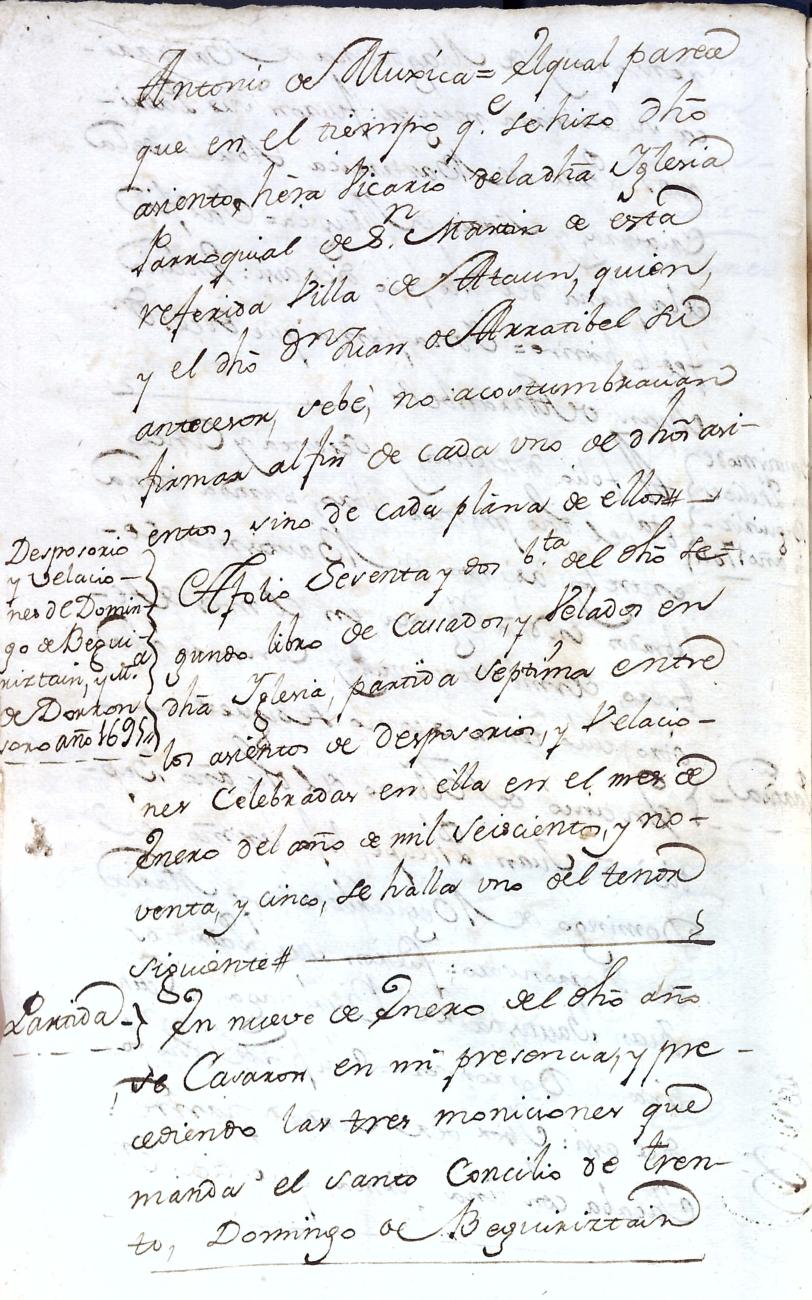 Antonio de Muxica = El qual parece
que en el tiempo q.e se hizo dho
asiento, hera Vicario dela dha Yglesia
Parroquial de S.n Martin de esta
referida Villa de Ataun, quien,
y el dho Dn Juan de Arratibel su
antecesor, sebé, no acostumbravan
firmar al fin de cada uno de dhos asi-
entos, sino de cada plana de ellos#
Desposorio
y Velacio-
nes de Domin-
go de Begui-
riztain, y M.a
de Dorron
soro año 1695
Afolio Setenta y dos b.ta del dho se=
gundo libro de Cassados, y Velados en
dha Yglesia, partida septima entre
los asientos de desposorios, y Velacio-
nes Celebradas en ella en el mes de
Enero del año de mil seiscientos, y no-
venta, y cinco, se halla uno del tenor
siguiente#
Partida
En nueve de Enero del dho año
se Casaron en mi presencia, y pre-
cediendo las tres moniciones que
manda el santo Concilio de Tren-
to, Domingo de Beguiriztain